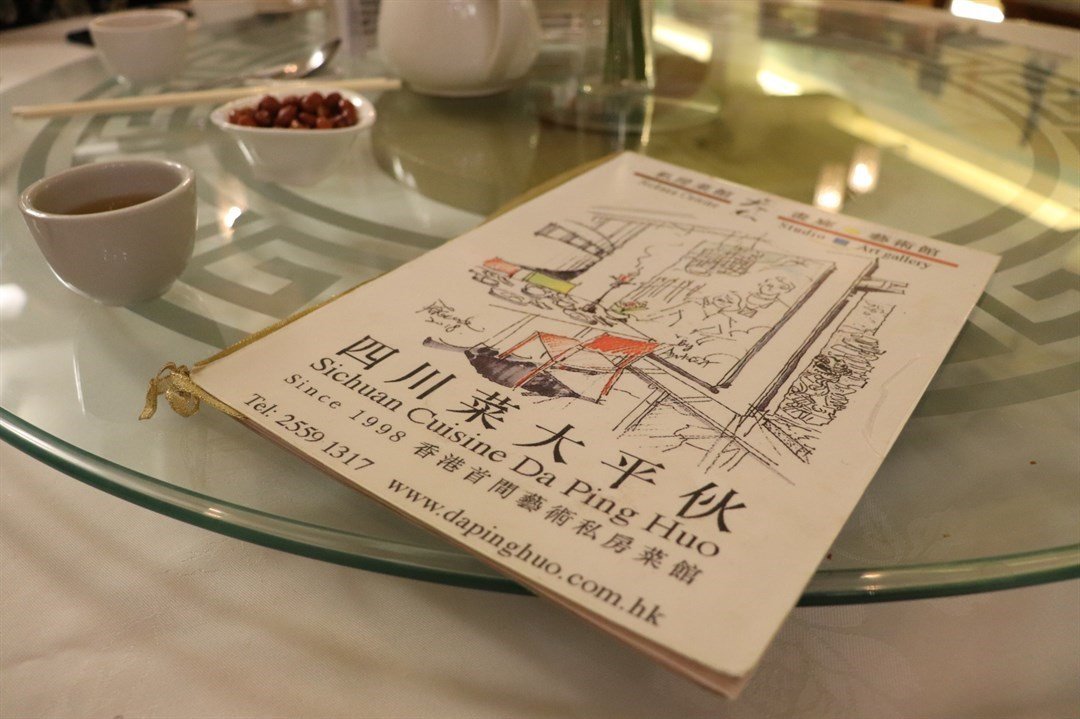 私房菜館 畫室 藝術館
Private Cuisine Studio Art gallery
2018
四川菜大平伙
Sichuan Cuisine Da Ping Huo
Since 1998 香港首間藝術私房菜館
Tel: 2559 1317
www.dapinghuo.com.hk